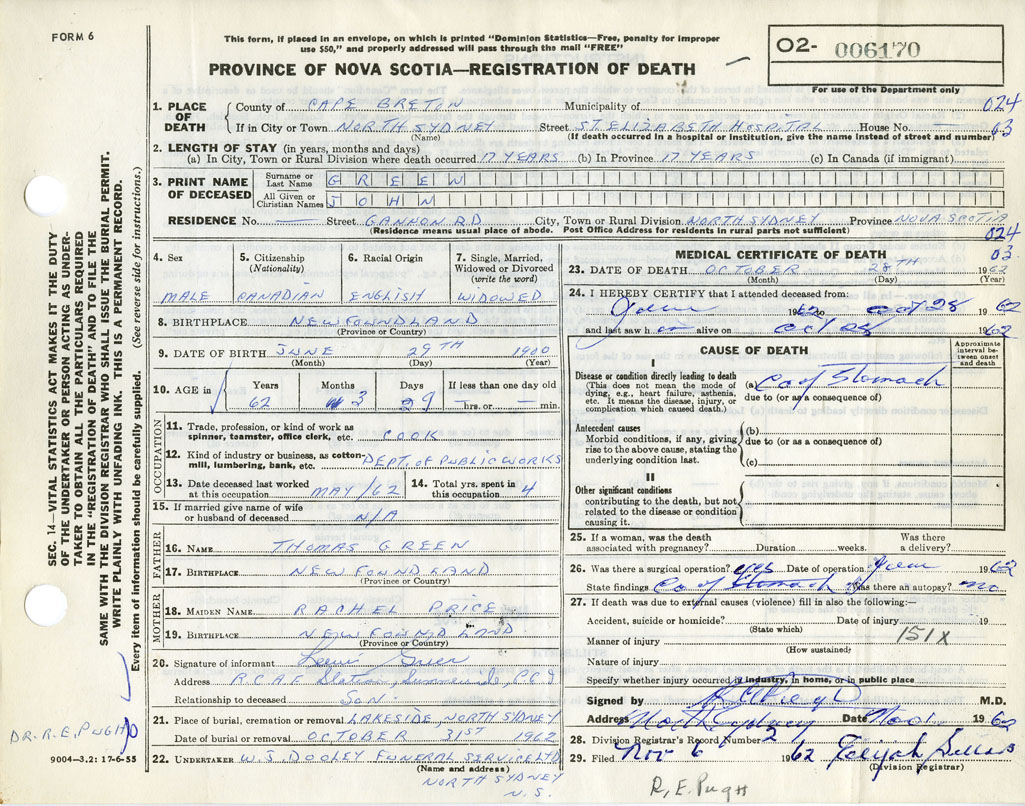 FORM 6
This form, if placed in an envelope, on which is printed "Dominion Statistics—Free, penalty for improper
use $50," and properly addressed will pass through the mail "FREE"
PROVINCE OF NOVA SCOTIA—REGISTRATION OF DEATH
02- 006170
For use of the Department only
1. PLACE OF DEATH County of CAPE BRETON Municipality of 024
If in City or Town NORTH SYDNEY Street ST ELIZABETH HOSPITAL House No. — 03
(Name) (If death occurred in a hospital or institution, give the name instead of street and number)
2. LENGTH OF STAY (in years, months and days)
(a) In City, Town or Rural Division where death occurred 17 YEARS (b) In Province 17 YEARS (c) In Canada (if immigrant)
3. PRINT NAME OF DECEASED
Surname or Last Name GREEN
All Given or Christian Names JOHN
RESIDENCE No. — Street GANNON RD City, Town or Rural Division NORTH SYDNEY Province NOVA SCOTIA
(Residence means usual place of abode. Post Office Address for residents in rural parts not sufficient) 024
03
4. Sex 5. Citizenship (Nationality) 6. Racial Origin 7. Single, Married, Widowed or Divorced (write the word)
MALE CANADIAN ENGLISH WIDOWED
8. BIRTHPLACE NEWFOUNDLAND
(Province or Country)
9. DATE OF BIRTH JUNE 29TH 1900
(Month) (Day) (Year)
10. AGE in Years Months Days If less than one day old
62 3 29 — hrs. or — min.
OCCUPATION
11. Trade, profession, or kind of work as spinner, teamster, office clerk, etc. COOK
12. Kind of industry or business, as cotton-mill, lumbering, bank, etc. DEPT. OF PUBLIC WORKS
13. Date deceased last worked at this occupation MAY/62 14. Total yrs. spent in this occupation 4
15. If married give name of wife or husband of deceased N/A
FATHER
16. NAME THOMAS GREEN
17. BIRTHPLACE NEWFOUNDLAND
(Province or Country)
MOTHER
18. MAIDEN NAME RACHEL PRICE
19. BIRTHPLACE NEWFOUNDLAND
(Province or Country)
20. Signature of informant
Address RCAF Station Summerside, PEI
Relationship to deceased Son
21. Place of burial, cremation or removal LAKESIDE, NORTH SYDNEY
Date of burial or removal OCTOBER 31ST 1962
22. UNDERTAKER W.J. DOOLEY FUNERAL SERVICE LTD
(Name and address)
NORTH SYDNEY
N.S.
MEDICAL CERTIFICATE OF DEATH
23. DATE OF DEATH OCTOBER 28TH 1962
(Month) (Day) (Year)
24. I HEREBY CERTIFY that I attended deceased from:
1962 to Oct 28 1962
and last saw h alive on Oct 28 1962
CAUSE OF DEATH
Approximate interval between onset and death
I
Disease or condition directly leading to death (a) Ca of Stomach
(This does not mean the mode of dying, e.g., heart failure, asthenia, etc. It means the disease, injury, or complication which caused death.)
due to (or as a consequence of)
Antecedent causes (b)
Morbid conditions, if any, giving rise to the above cause, stating the underlying condition last.
due to (or as a consequence of)
(c)
II
Other significant conditions
contributing to the death, but not related to the disease or condition causing it.
25. If a woman, was the death associated with pregnancy? Duration weeks. Was there a delivery?
26. Was there a surgical operation? yes Date of operation 1962
State findings Ca of Stomach Was there an autopsy? no
27. If death was due to external causes (violence) fill in also the following:—
Accident, suicide or homicide? Date of injury 19
(State which)
Manner of injury 151X
(How sustained)
Nature of injury
Specify whether injury occurred in industry, in home, or in public place
Signed by M.D.
Address North Sydney Date Nov 1962
28. Division Registrar's Record Number
29. Filed Nov 6 1962 Elijah
(Division Registrar)
R. E. Pugh
SEC. 14—VITAL STATISTICS ACT MAKES IT THE DUTY
OF THE UNDERTAKER OR PERSON ACTING AS UNDER-
TAKER TO OBTAIN ALL THE PARTICULARS REQUIRED
IN THE "REGISTRATION OF DEATH" AND TO FILE THE
SAME WITH THE DIVISION REGISTRAR WHO SHALL ISSUE THE BURIAL PERMIT.
WRITE PLAINLY WITH UNFADING INK. THIS IS A PERMANENT RECORD.
Every item of information should be carefully supplied. (See reverse side for instructions.)
DR. R. E. PUGH
9004—3,2: 17-6-55